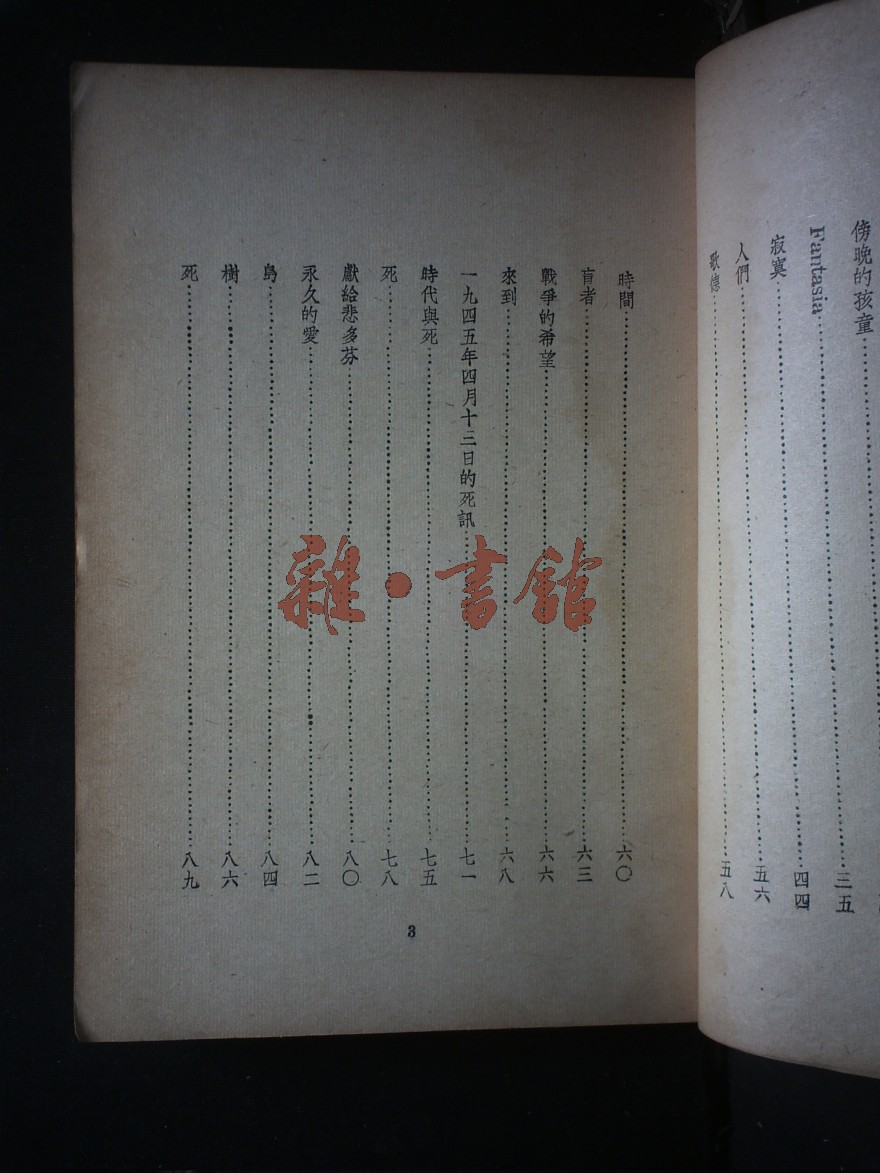 傍晚的孩童
Fantasia 三五
寂寞 四四
人們 五六
歌德 五八
時間 六〇
盲者 六三
戰爭的希望 六六
來到 六八
一九四五年四月十三日的死訊 七一
時代與死 七五
死 七八
獻給悲多芬 八〇
永久的愛 八二
島 八四
樹 八六
死 八九
3
雜·書館